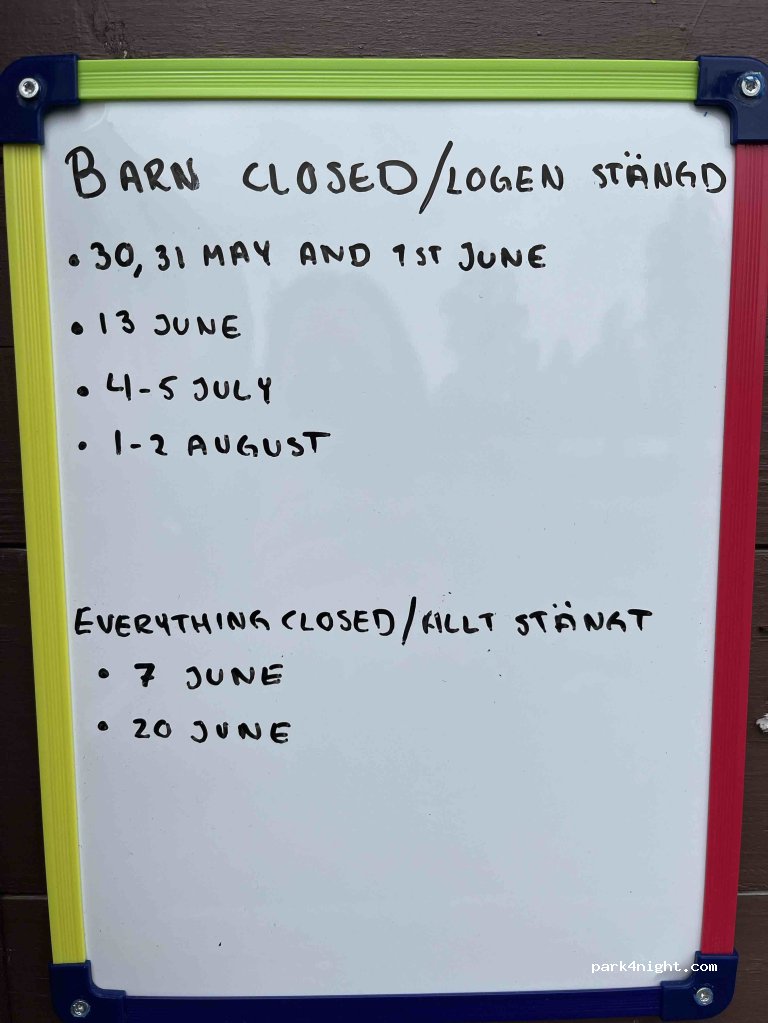 BARN CLOSED/LOGEN STÄNGD
• 30, 31 MAY AND 1ST JUNE
• 13 JUNE
• 4-5 JULY
• 1-2 AUGUST
EVERYTHING CLOSED/ALLT STÄNGT
• 7 JUNE
• 20 JUNE
park4night.com